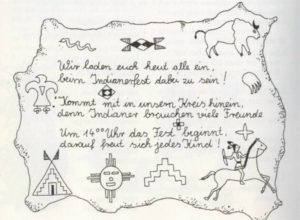 Wir laden euch heut alle ein,
beim Indianerfest dabei zu sein!
Kommt mit in unsern Kreis hinein,
denn Indianer brauchen viele Freunde
Um 14⁰⁰ Uhr das Fest beginnt,
darauf freut sich jedes Kind!